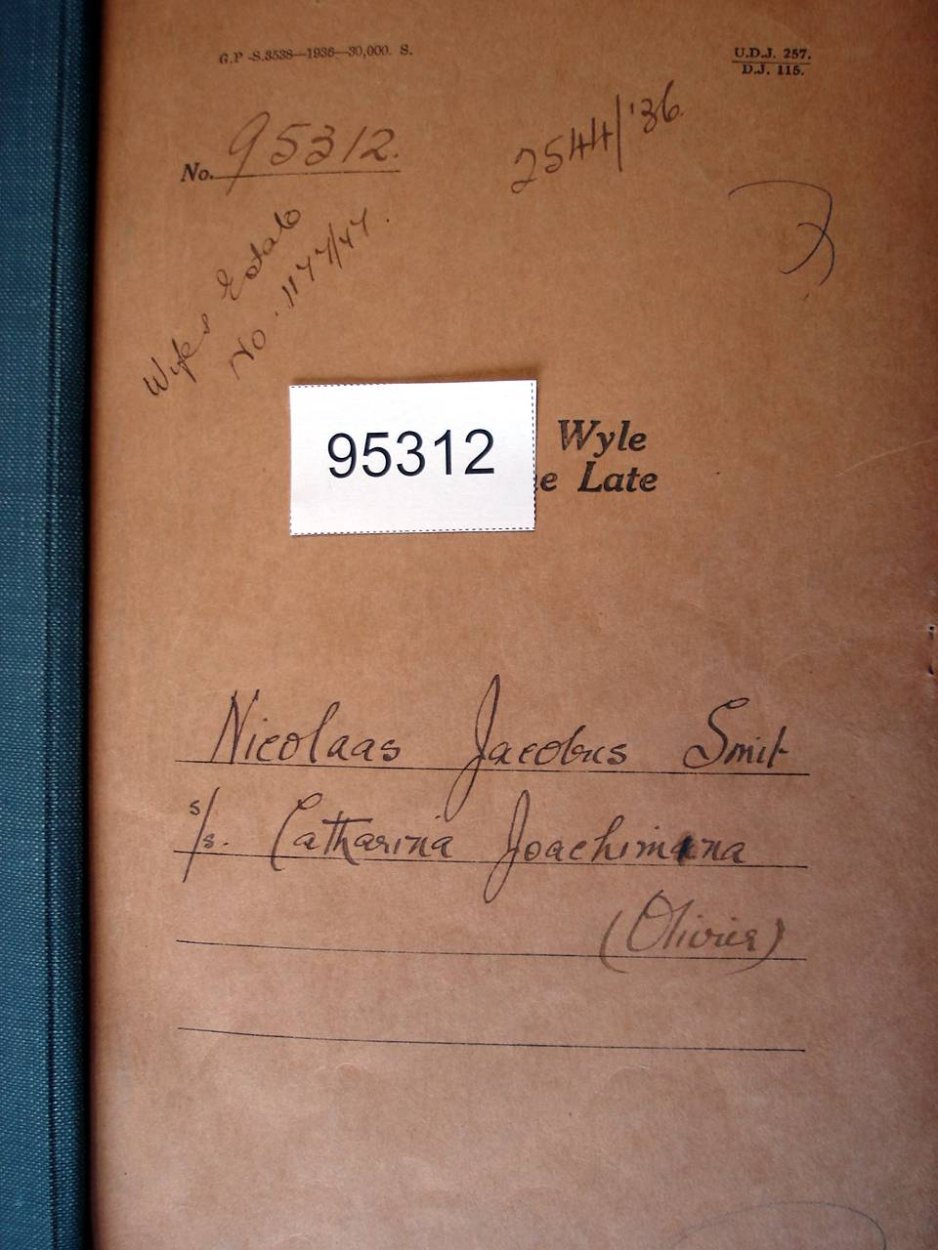 G.P -S.3538—1936—30,000. S.
U.D.J. 257.
D.J. 115.
No. 95312.
2544/'36.
Wife's Estate
No. 1177/47.
95312
Wyle
e Late
Nicolaas Jacobus Smit
s/s. Catharina Joachimana
(Olivier)